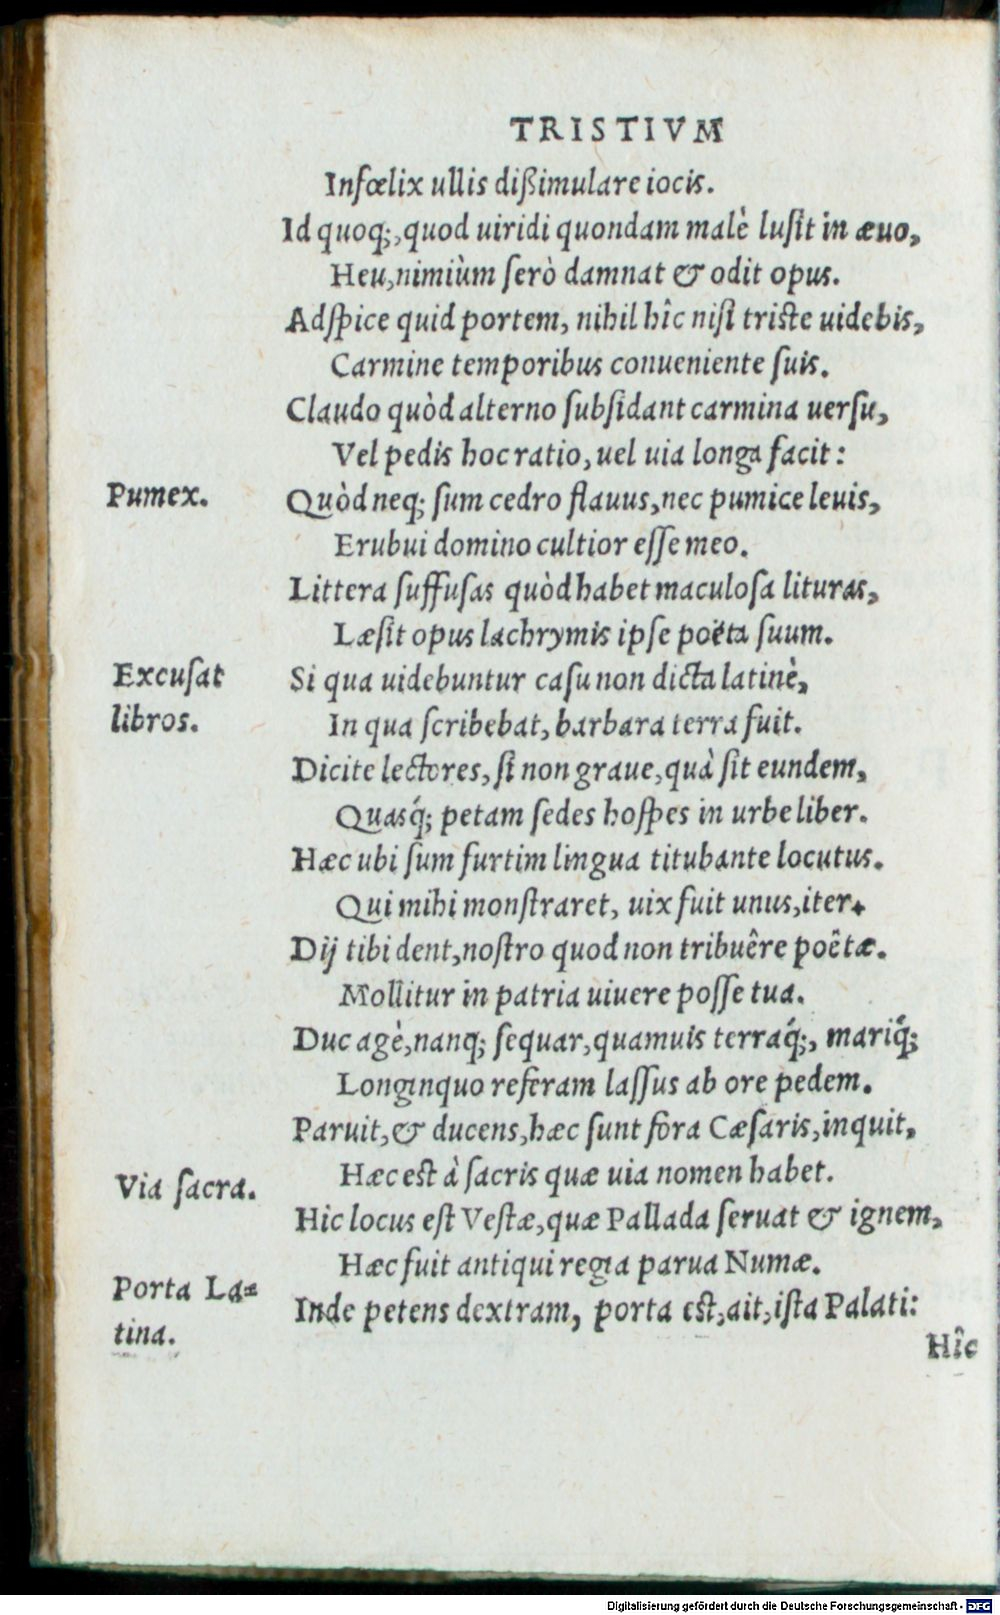 TRISTIVM
Infœlix ullis dißimulare iocis.
Id quoq;, quod uiridi quondam malè lusit in æuo,
Heu, nimiùm serò damnat & odit opus.
Adspice quid portem, nihil hîc nisi triste uidebis,
Carmine temporibus conueniente suis.
Claudo quòd alterno subsidant carmina uersu,
Vel pedis hoc ratio, uel uia longa facit:
Pumex.
Quòd neq; sum cedro flauus, nec pumice leuis,
Erubui domino cultior esse meo.
Littera suffusas quòd habet maculosa lituras,
Læsit opus lachrymis ipse poëta suum.
Excusat
Si qua uidebuntur casu non dicta latinè,
libros.
In qua scribebat, barbara terra fuit.
Dicite lectores, si non graue, quà sit eundem,
Quasq́; petam sedes hospes in urbe liber.
Hæc ubi sum furtim lingua titubante locutus.
Qui mihi monstraret, uix fuit unus, iter.
Dij tibi dent, nostro quod non tribuêre poêtæ.
Mollitur in patria uiuere posse tua.
Duc agè, nanq; sequar, quamuis terraq́;, mariq́;
Longinquo referam lassus ab ore pedem.
Paruit, & ducens, hæc sunt fora Cæsaris, inquit,
Via sacra.
Hæc est à sacris quæ uia nomen habet.
Hic locus est Vestæ, quæ Pallada seruat & ignem,
Hæc fuit antiqui regia parua Numæ.
Porta La=
Inde petens dextram, porta est, ait, ista Palati:
tina.
Hîc
Digitalisierung gefördert durch die Deutsche Forschungsgemeinschaft - DFG